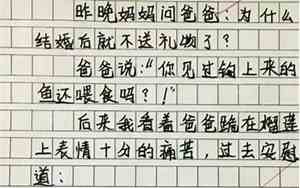 昨晚妈妈问爸爸:为什么
结婚后就不送礼物了?
爸爸说:“你见过钩上来的
鱼还喂食吗?!”
后来我看着爸爸跪在榴莲
上表情十分的痛苦,过去安慰
道: